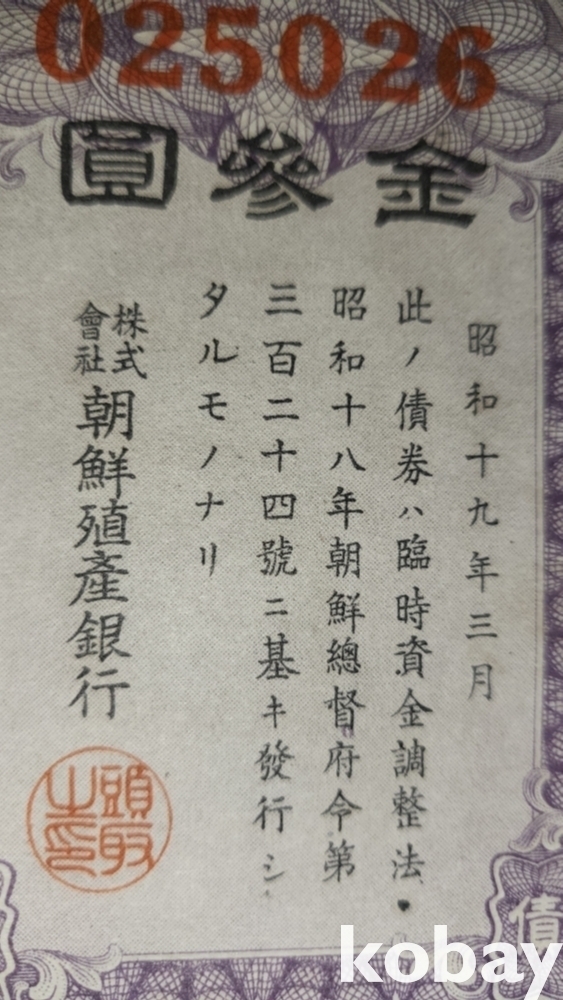 025026
金參圓
昭和十九年三月
此ノ債券ハ臨時資金調整法・
昭和十八年朝鮮總督府令第
三百二十四號ニ基キ發行シ
タルモノナリ
株式會社朝鮮殖產銀行
頭取之印
債
kobay